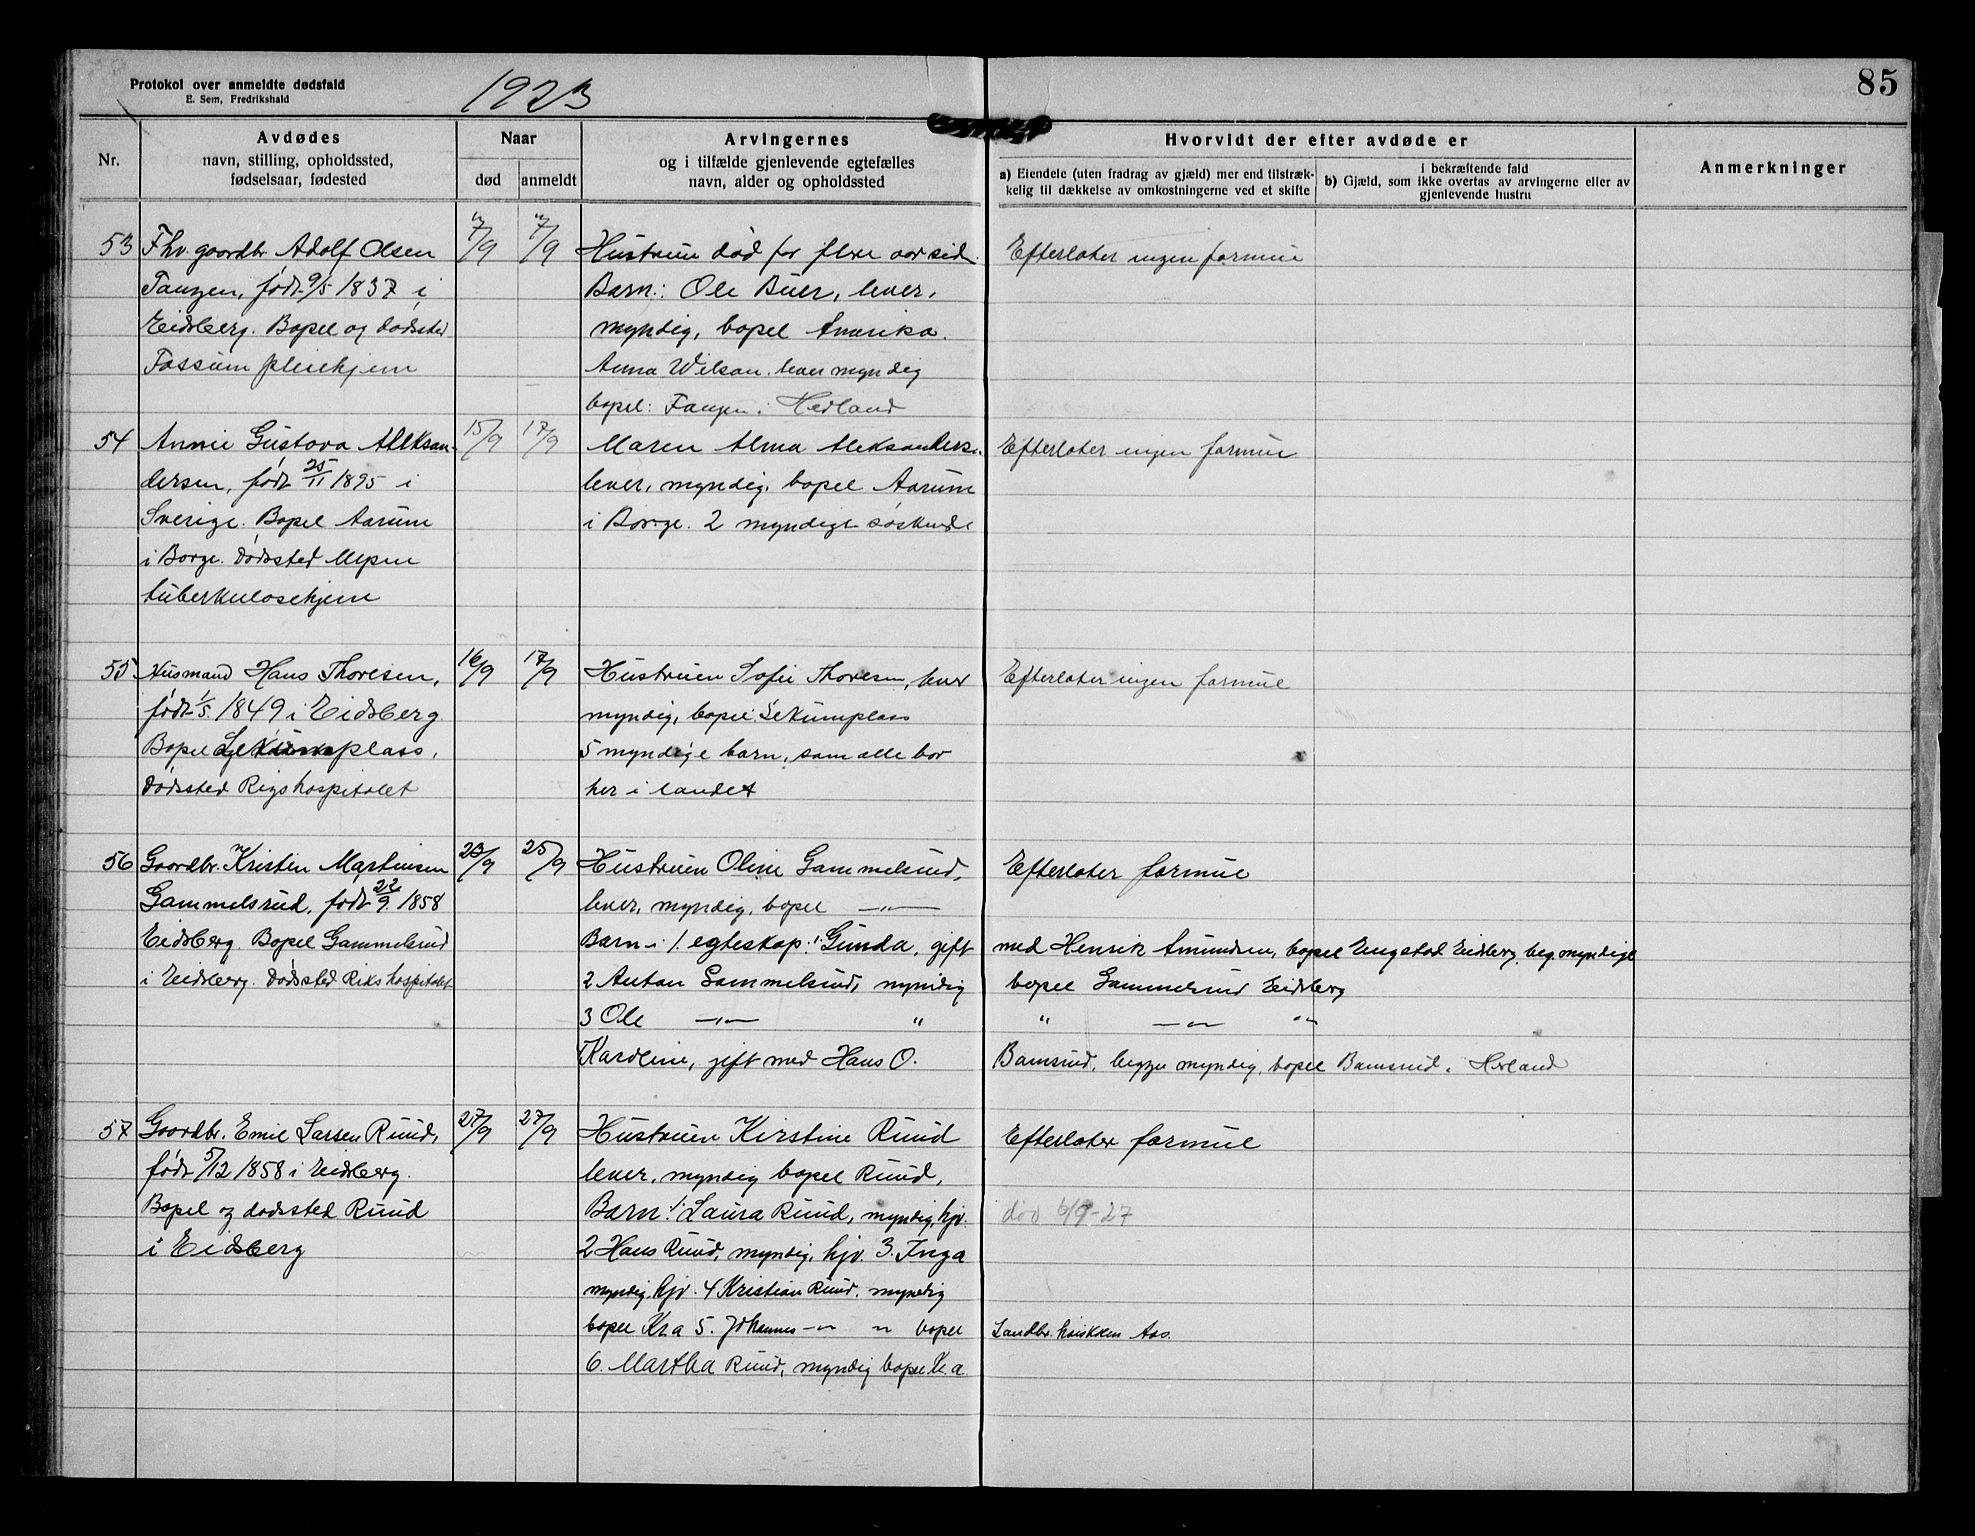 Protokol over anmeldte dødsfald
E. Sem, Fredrikshald
1923
85
Nr.
Avdødes
navn, stilling, opholdssted,
fødselsaar, fødested
Naar
død
anmeldt
Arvingernes
og i tilfælde gjenlevende egtefælles
navn, alder og opholdssted
Hvorvidt der efter avdøde er
a) Eiendele (uten fradrag av gjæld) mer end tilstræk-
kelig til dækkelse av omkostningerne ved et skifte
i bekræftende fald
b) Gjæld, som ikke overtas av arvingerne eller av
gjenlevende hustru
Anmerkninger
53 Fhv. gaardbr. Adolf Olsen
Tangen, født 9/5 1837 i
Eidsberg. Bopel og dødsted
Fossum pleiehjem
7/9 7/9
Hustruen død for flere aar sid.
Barn: Ole Buer, lever,
myndig, bopel Amerika.
Anna Wilson. lever myndig
bopel: Tangen i Herland
Efterlater ingen formue
54 Annie Gustava Aleksan-
dersen, født 25/11 1895 i
Sverige. Bopel Aarum
i Borge. Dødssted
tuberkulosehjem
15/9 17/9
Maren Alma Aleksanders.
lever, myndig, bopel Aarum
i Borge. 2 myndige søskende
Efterlater ingen formue
55 Husmand Hans Thoresen,
født 1/5 1849 i Eidsberg
Bopel plass,
dødssted Rigshospitalet
16/9 17/9
Hustruen Sofie Thoresen, lever
myndig, bopel Sekumplass
5 myndige barn, som alle bor
her i landet
Efterlater ingen formue
56 Gaardbr. Kristen Martinsen
Gammelsrud, født 22/9 1858
Eidsberg. Bopel Gammelsrud
i Eidsberg. Dødssted Rikshospitalet
23/9 25/9
Hustruen Oline Gammelsrud,
lever, myndig, bopel —"—
Barn i 1. egteskap: 1 Gunda, gift
med Henrik Amundsen, bopel Engstad Eidsberg, beg. myndige
2 Anton Gammelsrud, myndig bopel Gammelsrud Eidsberg
3 Ole —"— " " —"— "
Karoline, gift med Hans O. Bamsrud, begge myndig, bopel Bamsrud i Herland
Efterlater formue
57 Gaardbr. Emil Larsen Ruud,
født 5/12 1858 i Eidsberg.
Bopel og dødssted Ruud
i Eidsberg
27/9 27/9
Hustruen Kirstine Ruud
lever, myndig bopel Ruud,
Barn: 1. Laura Ruud, myndig, hjv.
død 6/9-27
2 Hans Ruud, myndig, hjv. 3. Inga
myndig, hjv. 4 Kristian Ruud, myndig
bopel Kra 5. Johannes —"— " bopel Landbr. høiskolen Aas.
6. Martha Ruud, myndig bopel Kra
Efterlater formue